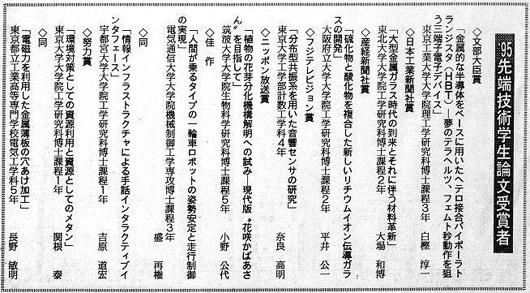 '95先端技術学生論文受賞者
◇文部大臣賞
「金属的な半導体をベースに用いたヘテロ接合バイポーラト
ランジスタ(MBHBT)―夢のテラヘルツ、フェムト秒動作を狙
う三端子電子デバイス」
東京工業大学大学院理工学研究科博士課程3年 白樫 淳一
◇日本工業新聞社賞
「大型金属ガラス時代の到来とそれに伴う材料革新」
東北大学大学院工学研究科博士課程2年 大場 和博
◇産経新聞社賞
「硫化物と酸化物を複合した新しいリチウムイオン伝導ガラ
スの開発」
大阪府立大学大学院工学研究科博士課程2年 平井 公一
◇フジテレビジョン賞
「分布型共振系を用いた音響センサの研究」
東京大学工学部計数工学科4年 奈良 高明
◇ニッポン放送賞
「植物の花芽分化機構解明への試み―現代版"花咲かばあさ
ん"を目指して」
筑波大学大学院生物科学研究科博士課程5年 小野 公代
◇佳作
「人間が乗るタイプの一輪車ロボットの姿勢安定と走行制御
の実現」
電気通信大学大学院機械制御工学専攻博士課程3年
盛 再権
◇同
「情報インフラストラクチャによる手話インタラクティブイ
ンタフェース」
宇都宮大学大学院工学研究科博士課程1年 吉原 道宏
◇努力賞
「環境対策としての資源利用と資源としてのメタン」
東京大学大学院工学研究科博士課程1年 関根 泰
◇同
「電磁力を利用した金属薄板の穴あけ加工」
東京都立工業高等専門学校電気工学科5年 長野 敏明